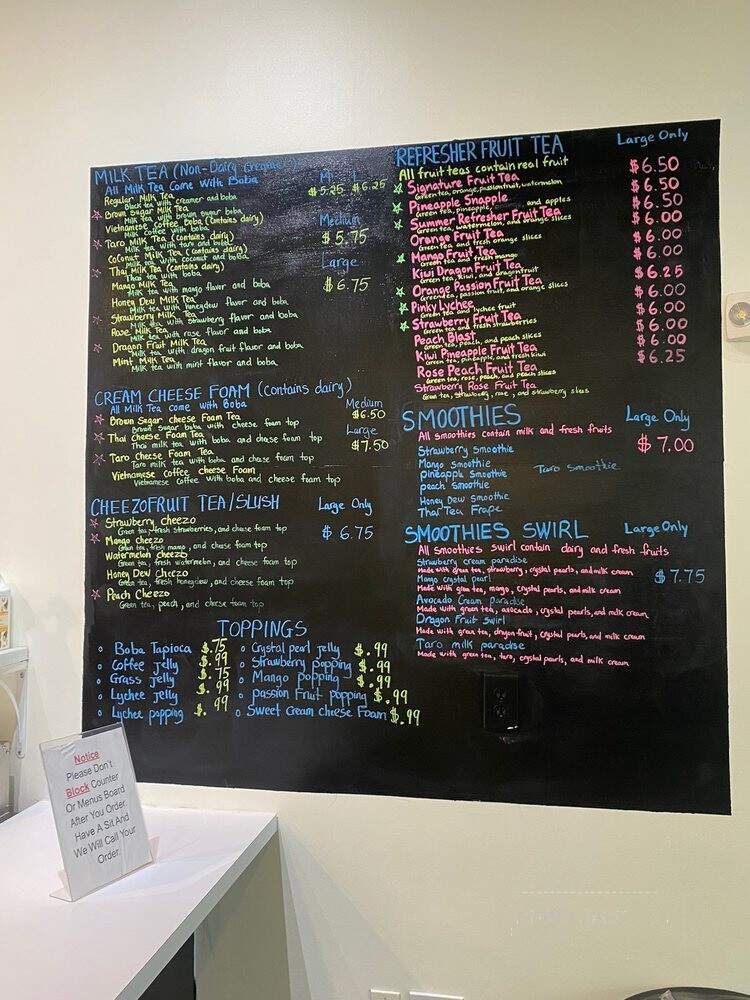 MILK TEA (Non-Dairy Creamer)
All Milk Tea Come With Boba
M L
$5.25 $6.25
Regular Milk Tea
Black tea with creamer and boba
Brown Sugar Milk Tea
Milk tea with brown sugar boba
Vietnamese Coffee Boba (Contains dairy)
Milk Coffee with boba
Taro Milk Tea (contains dairy)
Milk tea with taro and boba
Coconut Milk Tea (contains dairy)
Milk tea with coconut and boba
Thai Milk Tea (contains dairy)
Thai tea with boba
Mango Milk Tea
Milk tea with mango flavor and boba
Honey Dew Milk Tea
Milk tea with honeydew flavor and boba
Strawberry Milk Tea
Milk tea with strawberry flavor and boba
Rose Milk Tea
Milk tea with rose flavor and boba
Dragon Fruit Milk Tea
Milk tea with dragon fruit flavor and boba
Mint Milk Tea
Milk tea with mint flavor and boba
Medium
$5.75
Large
$6.75
CREAM CHEESE FOAM (contains dairy)
All Milk Tea come with Boba
Brown Sugar cheese Foam Tea
Brown Sugar boba with cheese foam top
Thai Cheese Foam Tea
Thai milk tea with boba and cheese foam top
Taro Cheese Foam Tea
Taro milk tea with boba and cheese foam top
Vietnamese Coffee cheese Foam
Vietnamese Coffee with boba and cheese foam top
Medium
$6.50
Large
$7.50
CHEEZOFRUIT TEA/SLUSH
Large Only
$6.75
Strawberry cheezo
Green tea, fresh strawberries, and cheese foam top
Mango cheezo
Green tea, fresh mango, and cheese foam top
Watermelon cheezo
Green tea, fresh watermelon, and cheese foam top
Honey Dew Cheezo
Green tea, fresh honeydew, and cheese foam top
Peach Cheezo
Green tea, peach, and cheese foam top
TOPPINGS
Boba Tapioca $.75
Coffee Jelly $.99
Grass Jelly $.75
Lychee Jelly $.99
Lychee popping $.99
Crystal pearl jelly $.99
Strawberry popping $.99
Mango popping $.99
passion Fruit popping $.99
Sweet Cream Cheese Foam $.99
REFRESHER FRUIT TEA
Large Only
All fruit teas contain real fruit
Signature Fruit Tea
Green tea, orange, passionfruit, watermelon
Pineapple Snapple
Green tea, pineapple, and apples
Summer Refresher Fruit Tea
Green tea, watermelon, and orange slices
Orange Fruit Tea
Green tea and fresh orange slices
Mango Fruit Tea
Green tea and fresh mango
Kiwi Dragon Fruit Tea
Green tea, kiwi, and dragonfruit
Orange Passion Fruit Tea
Green tea, passion fruit, and orange slices
Pinky Lychee
Green tea and lychee fruit
Strawberry Fruit Tea
Green tea and fresh strawberries
Peach Blast
Green tea, peach, and peach slices
Kiwi Pineapple Fruit Tea
Green tea, pineapple, and fresh kiwi
Rose Peach Fruit Tea
Green tea, rose, peach, and peach slices
Strawberry Rose Fruit Tea
Green tea, strawberry, rose, and strawberry slices
$6.50
$6.50
$6.50
$6.00
$6.00
$6.00
$6.25
$6.00
$6.00
$6.00
$6.00
$6.25
SMOOTHIES
Large Only
All smoothies contain milk and fresh fruits
$7.00
Strawberry Smoothie
Mango Smoothie
Pineapple Smoothie
peach Smoothie
Honey Dew Smoothie
Thai Tea Frape
Taro Smoothie
SMOOTHIES SWIRL
Large Only
All smoothies swirl contain dairy and fresh fruits
$7.75
Strawberry cream paradise
Made with green tea, strawberry, crystal pearls, and milk cream
Mango crystal pearl
Made with green tea, mango, crystal pearls, and milk cream
Avocado Cream Paradise
Made with green tea, avocado, crystal pearls, and milk cream
Dragon Fruit Swirl
Made with green tea, dragon fruit, crystal pearls, and milk cream
Taro milk paradise
Made with green tea, taro, crystal pearls, and milk cream
Notice
Please Don't
Block Counter
Or Menus Board
After You Order.
Have A Sit And
We Will Call Your
Order.